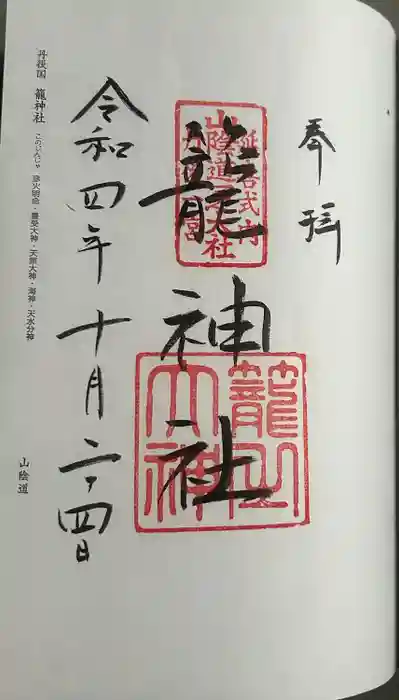 奉拝
延喜式内
山陰道一宮社
籠神社
籠之大神
令和四年十月二十四日
丹後国 籠神社 このじんじゃ 彦火明命・豊受大神・天照大神・海神・天水分神
山陰道